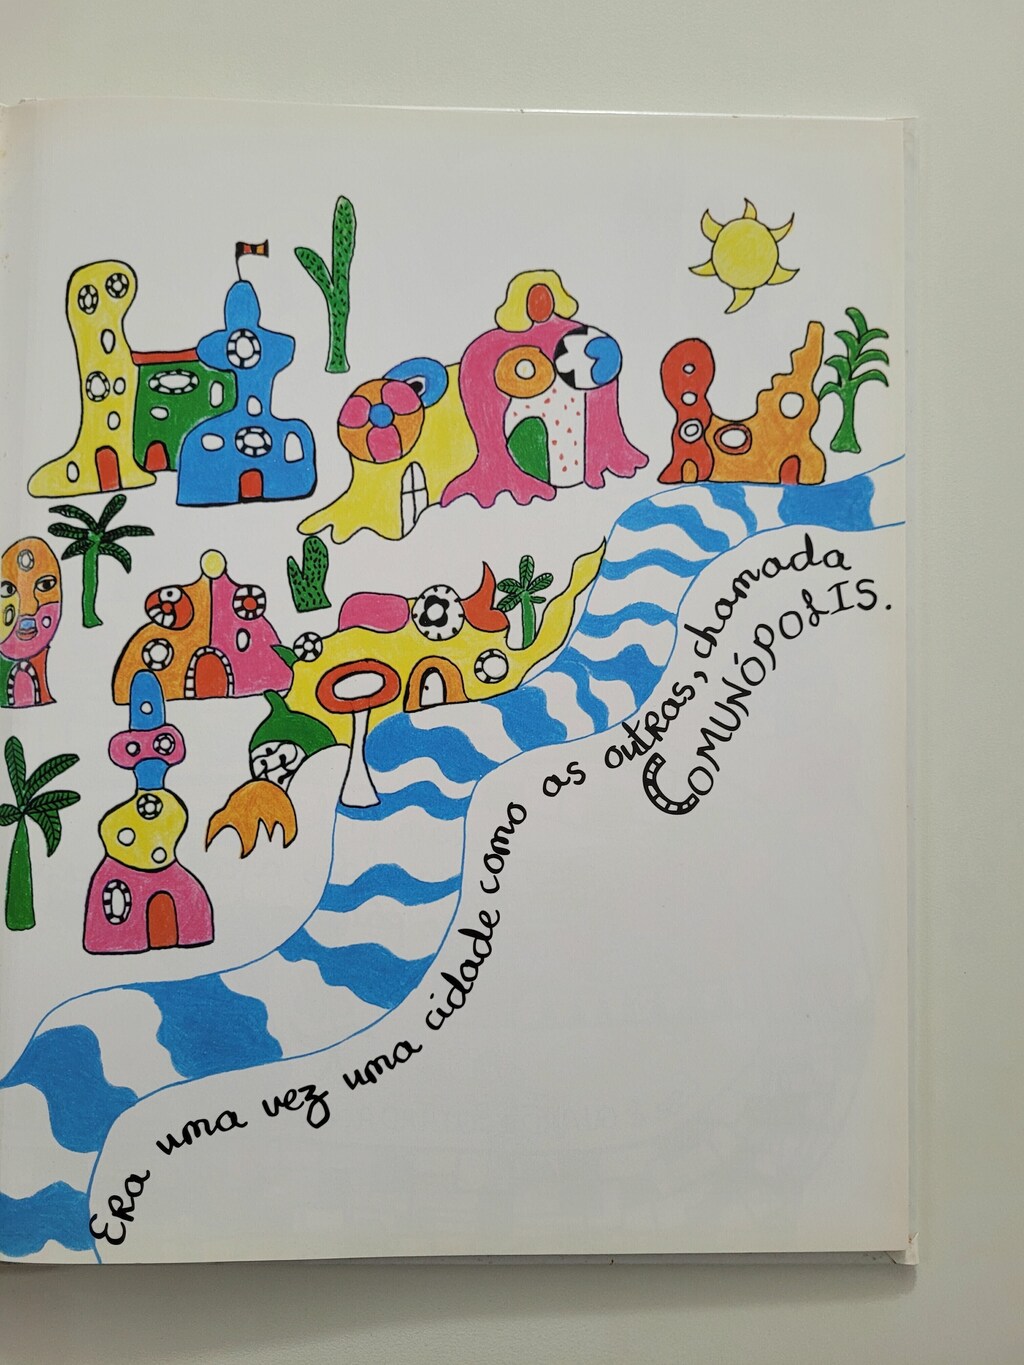 Era uma vez uma cidade como as outras, chamada
COMUNÓPOLIS.